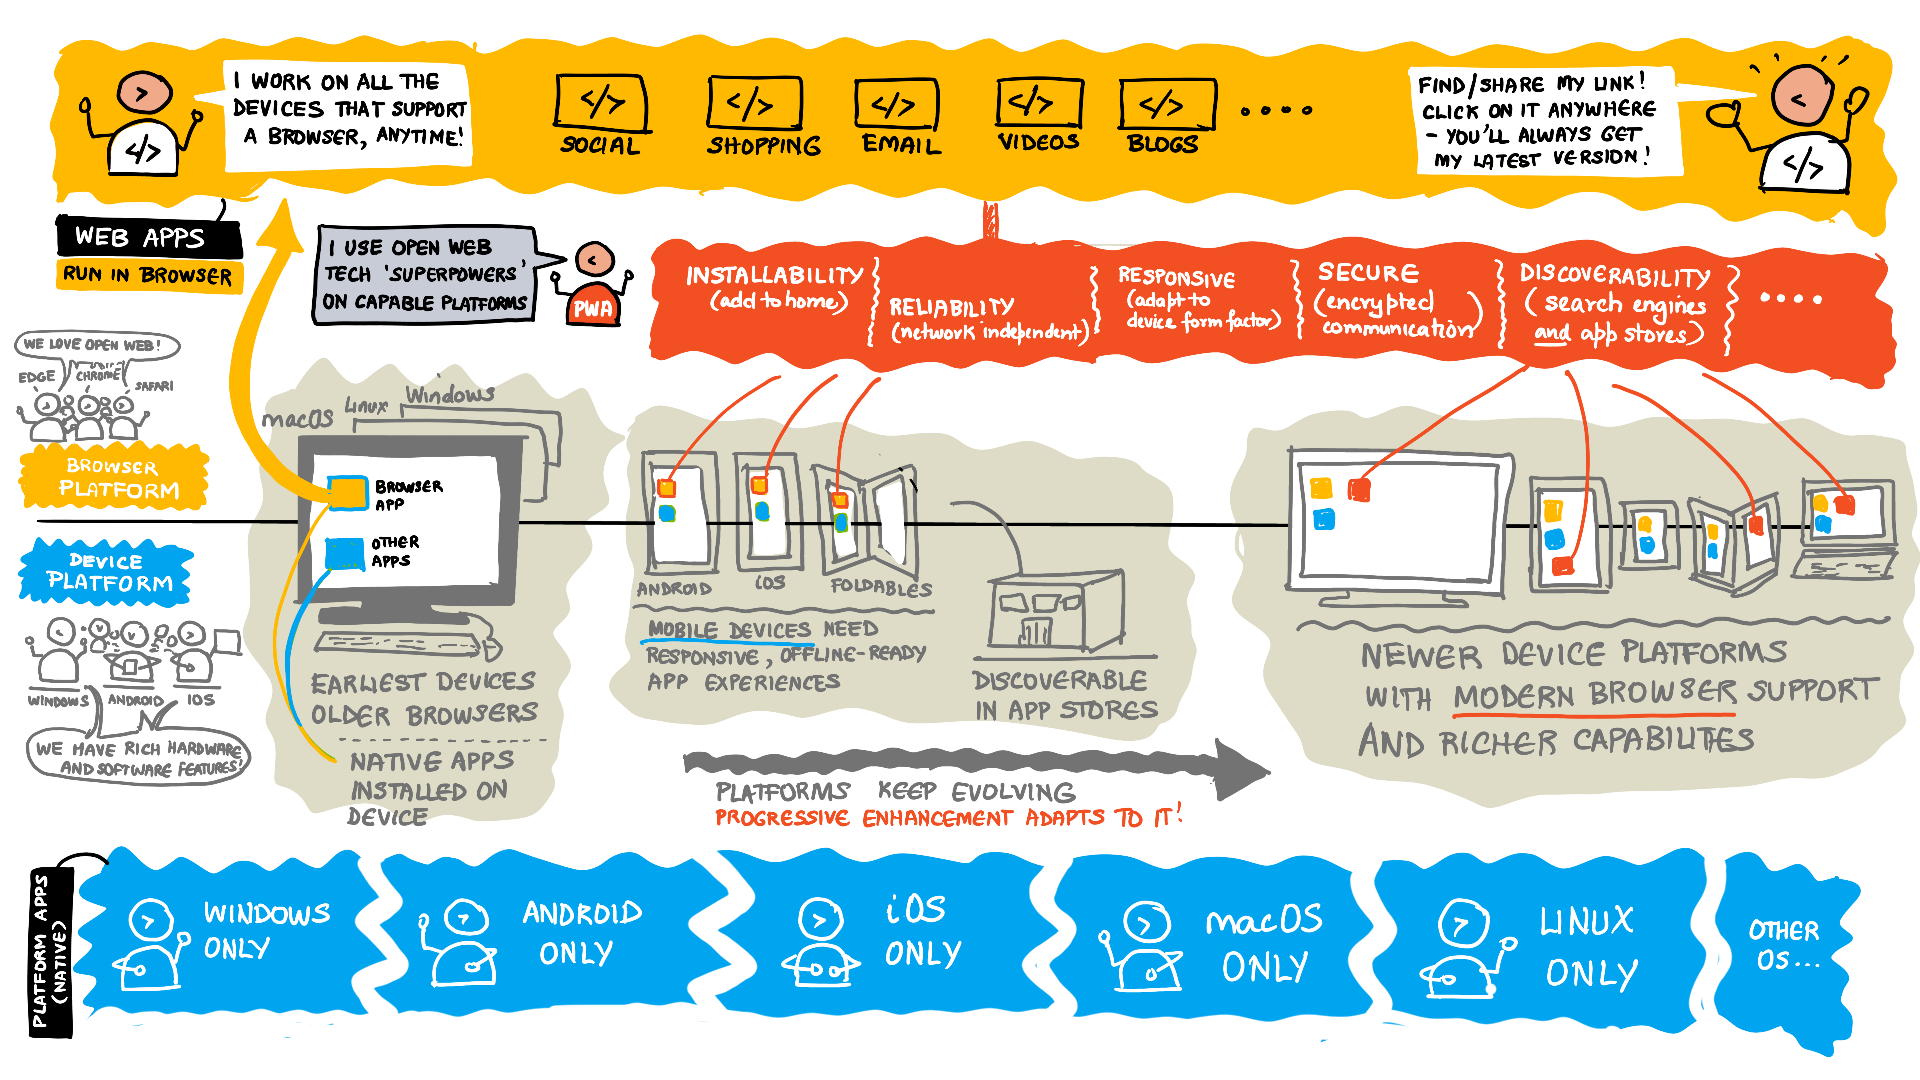 I WORK ON ALL THE
DEVICES THAT SUPPORT
A BROWSER, ANYTIME!
</>
</>
SOCIAL
</>
SHOPPING
</>
EMAIL
</>
VIDEOS
</>
BLOGS
....
FIND/SHARE MY LINK!
CLICK ON IT ANYWHERE
- YOU'LL ALWAYS GET
MY LATEST VERSION!
</>
WEB APPS
RUN IN BROWSER
I USE OPEN WEB
TECH 'SUPERPOWERS'
ON CAPABLE PLATFORMS
PWA
INSTALLABILITY
(add to home)
RELIABILITY
(network independent)
RESPONSIVE
(adapt to
device form factor)
SECURE
(encrypted
communication)
DISCOVERABILITY
(search engines
and app stores)
....
WE LOVE OPEN WEB!
EDGE
CHROME
SAFARI
BROWSER
PLATFORM
DEVICE
PLATFORM
WINDOWS
ANDROID
IOS
WE HAVE RICH HARDWARE
AND SOFTWARE FEATURES!
macOS
Linux
Windows
BROWSER
APP
OTHER
APPS
EARLIEST DEVICES
OLDER BROWSERS
NATIVE APPS
INSTALLED ON
DEVICE
ANDROID
iOS
FOLDABLES
MOBILE DEVICES NEED
RESPONSIVE, OFFLINE-READY
APP EXPERIENCES
DISCOVERABLE
IN APP STORES
PLATFORMS KEEP EVOLVING
PROGRESSIVE ENHANCEMENT ADAPTS TO IT!
NEWER DEVICE PLATFORMS
WITH MODERN BROWSER SUPPORT
AND RICHER CAPABILITES
PLATFORM APPS
(NATIVE)
WINDOWS
ONLY
ANDROID
ONLY
iOS
ONLY
macOS
ONLY
LINUX
ONLY
OTHER
OS...